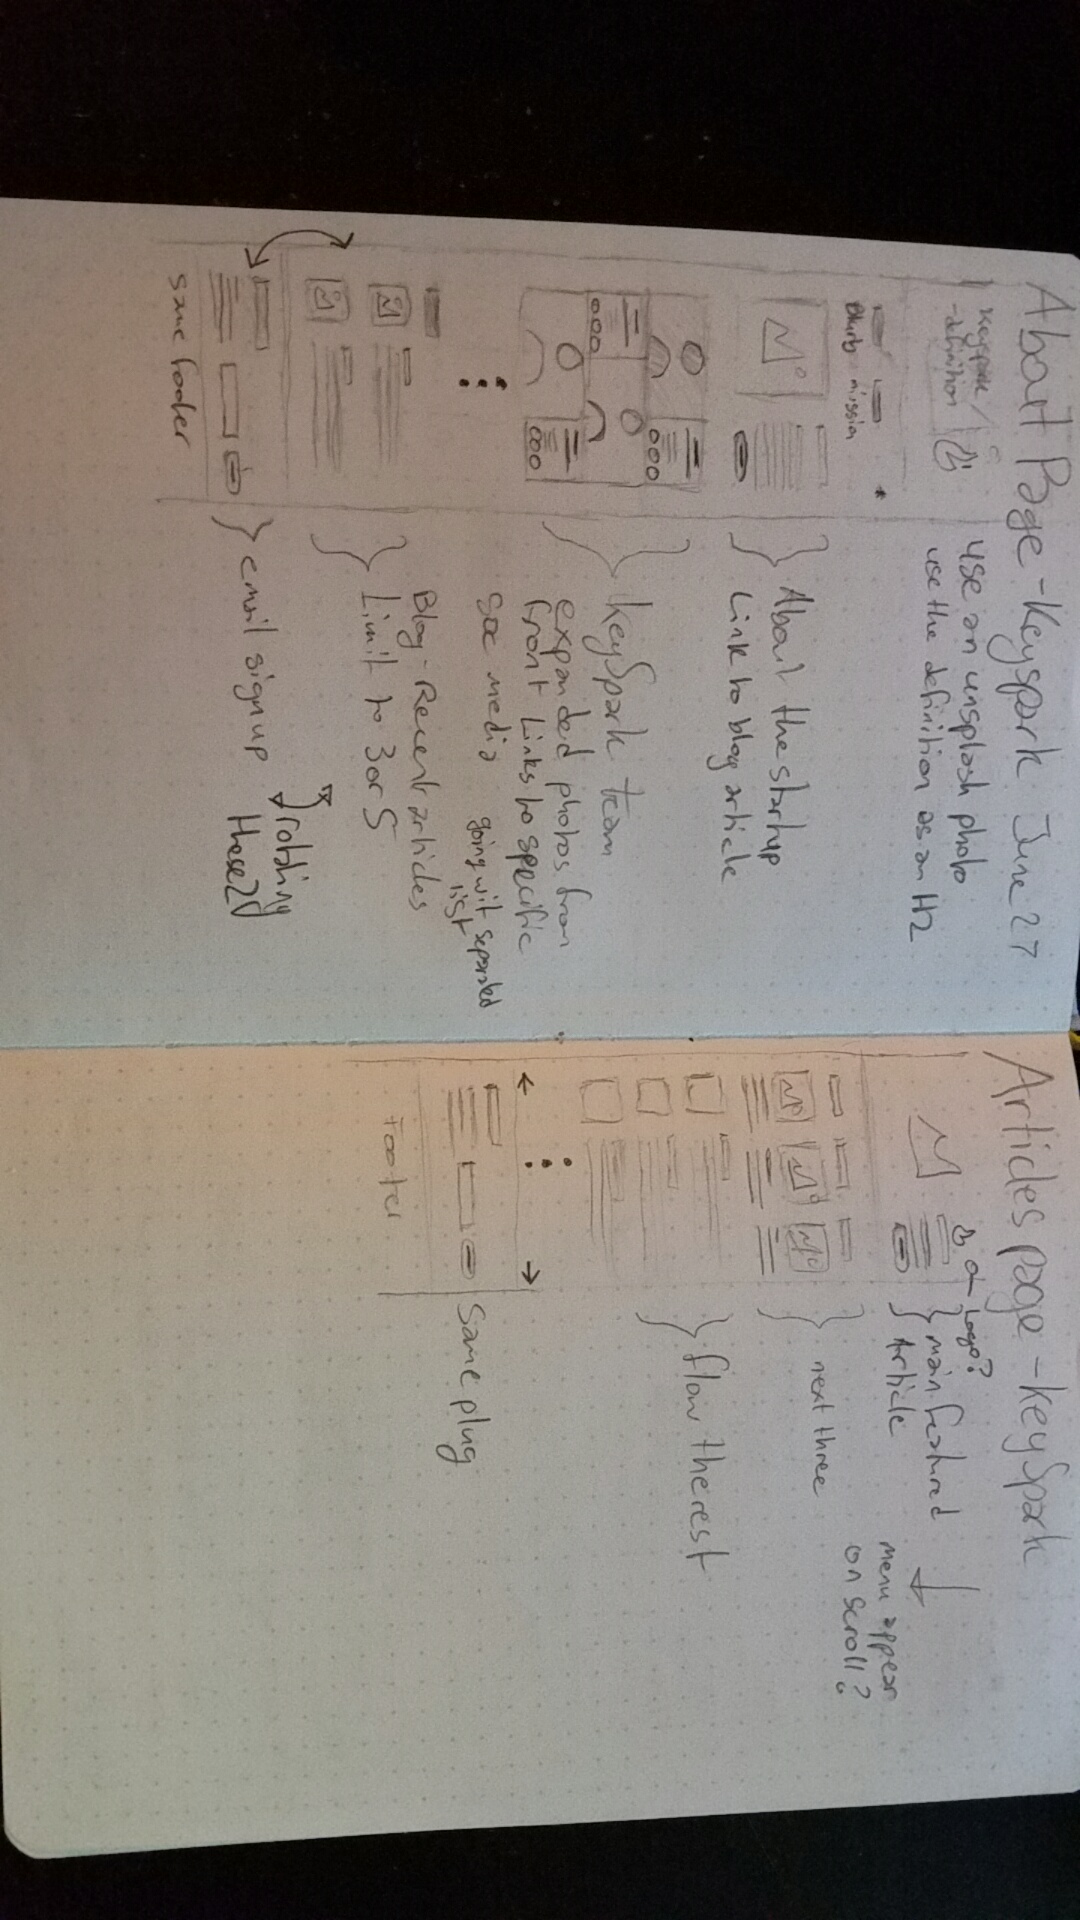 About Page - Keyspark June 27
Keyspark
- definition
use an unsplash photo
use the definition as an H2
Blurb mission
About the startup
Link to blog article
KeySpark team
expanded photos from
front Links to specific
soc media
going wit separated
list
Blog - Recent articles
Limit to 3 or 5
email signup
these 2
same footer
Articles page - keySpark
Logo?
main featured
Article
menu appear
on scroll?
next three
flow the rest
same plug
Footer